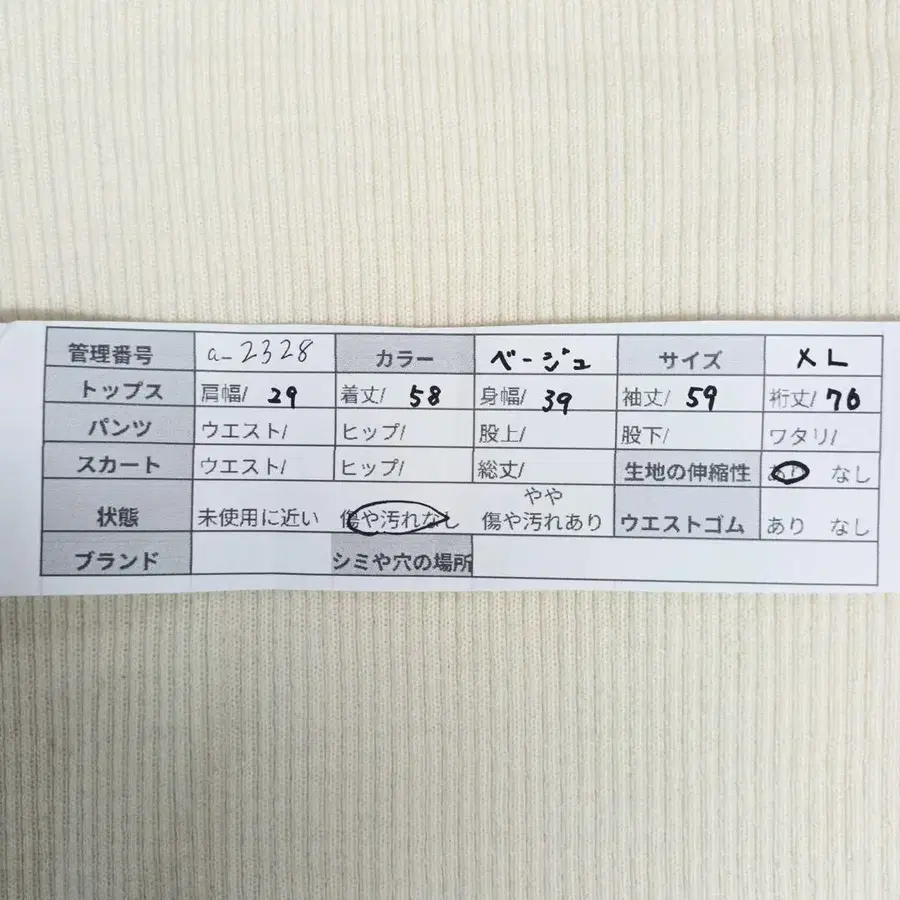 管理番号 a-2328 カラー ベージュ サイズ XL
トップス 肩幅/ 29 着丈/ 58 身幅/ 39 袖丈/ 59 裄丈/ 76
パンツ ウエスト/ ヒップ/ 股上/ 股下/ ワタリ/
スカート ウエスト/ ヒップ/ 総丈/ 生地の伸縮性 あり なし
状態 未使用に近い 傷や汚れなし やや傷や汚れあり ウエストゴム あり なし
ブランド シミや穴の場所